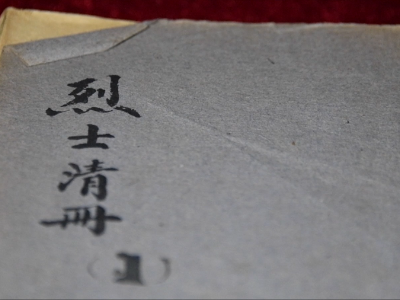 烈士清冊
(1)